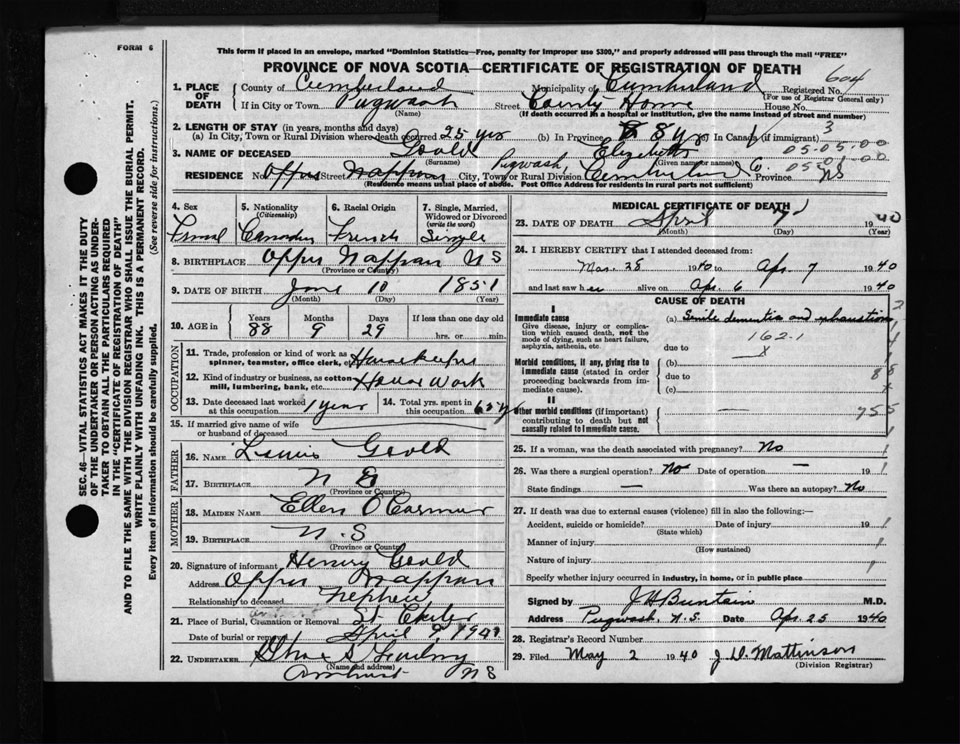 FORM 6
This form if placed in an envelope, marked "Dominion Statistics—Free, penalty for improper use $300," and properly addressed will pass through the mail "FREE"
PROVINCE OF NOVA SCOTIA—CERTIFICATE OF REGISTRATION OF DEATH
1. PLACE OF DEATH
County of Cumberland Municipality of Cumberland Registered No. 604
(For use of Registrar General only)
If in City or Town Pugwash Street County Home House No.
(Name) (If death occurred in a hospital or institution, give the name instead of street and number)
2. LENGTH OF STAY (in years, months and days)
(a) In City, Town or Rural Division where death occurred 25 yrs (b) In Province 88 yrs (c) In Canada (if immigrant)
3
05-05-00
3. NAME OF DECEASED Elizabeth
(Surname) (Given name or names)
05-01-00
RESIDENCE No. Upper Street Nappan Pugwash City, Town or Rural Division Cumberland Co Province NS
(Residence means usual place of abode. Post Office Address for residents in rural parts not sufficient)
4. Sex
5. Nationality (Citizenship)
6. Racial Origin
7. Single, Married, Widowed or Divorced (write the word)
French Single
8. BIRTHPLACE Upper Nappan NS
(Province or Country)
9. DATE OF BIRTH June 10 1851
(Month) (Day) (Year)
10. AGE in Years Months Days If less than one day old
88 9 29 hrs. or min.
OCCUPATION
11. Trade, profession or kind of work as spinner, teamster, office clerk, etc. Housekeeper
12. Kind of industry or business, as cotton mill, lumbering, bank, etc. House Work
13. Date deceased last worked at this occupation 1 year
14. Total yrs. spent in this occupation 65 yrs
15. If married give name of wife or husband of deceased
FATHER
16. NAME
17. BIRTHPLACE N S
(Province or Country)
MOTHER
18. MAIDEN NAME Ellen
19. BIRTHPLACE N.S
(Province or Country)
20. Signature of informant Henry
Address Upper Nappan
Relationship to deceased Nephew
21. Place of Burial, Cremation or Removal St. Charles
Date of burial or removal April 9 1940
22. UNDERTAKER
(Name and address)
Amherst NS
MEDICAL CERTIFICATE OF DEATH
23. DATE OF DEATH April 7 1940
(Month) (Day) (Year)
24. I HEREBY CERTIFY that I attended deceased from:
Mar. 28 1940 to Apr. 7 1940
and last saw her alive on Apr. 6 1940
CAUSE OF DEATH
I
Immediate cause (a) Senile dementia and exhaustion
Give disease, injury or complication which caused death, not the mode of dying, such as heart failure, asphyxia, asthenia, etc.
162.1
due to
Morbid conditions, if any, giving rise to immediate cause (stated in order proceeding backwards from immediate cause). (b)
due to
(c)
II
Other morbid conditions (if important) contributing to death but not causally related to immediate cause.
25. If a woman, was the death associated with pregnancy? No
26. Was there a surgical operation? No Date of operation — 19
State findings — Was there an autopsy? No
27. If death was due to external causes (violence) fill in also the following:—
Accident, suicide or homicide? Date of injury 19
(State which)
Manner of injury
(How sustained)
Nature of injury
Specify whether injury occurred in industry, in home, or in public place
Signed by J H Buntain M.D.
Address Pugwash, N.S. Date Apr. 25 1940
28. Registrar's Record Number
29. Filed May 2 1940 J D Mattinson
(Division Registrar)
SEC. 46—VITAL STATISTICS ACT MAKES IT THE DUTY
OF THE UNDERTAKER OR PERSON ACTING AS UNDER-
TAKER TO OBTAIN ALL THE PARTICULARS REQUIRED
IN THE "CERTIFICATE OF REGISTRATION OF DEATH"
AND TO FILE THE SAME WITH THE DIVISION REGISTRAR WHO SHALL ISSUE THE BURIAL PERMIT.
WRITE PLAINLY WITH UNFADING INK. THIS IS A PERMANENT RECORD.
Every item of information should be carefully supplied. (See reverse side for instructions.)